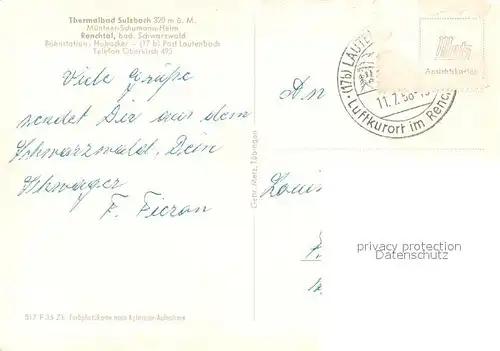 Thermalbad Sulzbach 320 m ü. M.
Müntner-Schumann-Heim
Renchtal, bad. Schwarzwald
Bahnstation: Hubacker – (17 b) Post Lautenbach
Telefon Oberkirch 495
Viele Grüße
sendet Dir aus dem
Schwarzwald, Dein
Schwager
F. Fieran
Gebr. Metz, Tübingen
517 F 35 Zk Farbphotokarte nach Agfacolor-Aufnahme
(17b) LAUTE
11.7.58-15
Luftkurort im Renc
Metz
Ansichtskarten
An
Louis
privacy protection
www.ansichtskarten-center.de